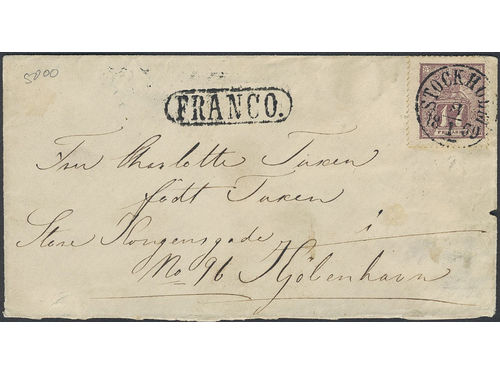 5000
FRANCO.
STOCKHOLM
18 69
Fru Charlotte Tuxen
født Tuxen
i
Store Kongensgade
No 96 Kjöbenhavn